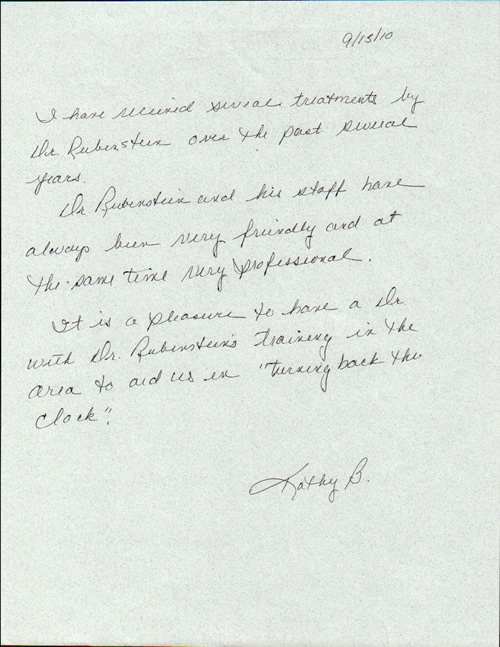 9/13/10
I have received several treatments by
Dr. Rubinstein over the past several
years.
Dr Rubinstein and his staff have
always been very friendly and at
the same time very professional.
It is a pleasure to have a Dr.
with Dr. Rubinstein's training in the
area to aid us in "turning back the
clock".
Kathy B.